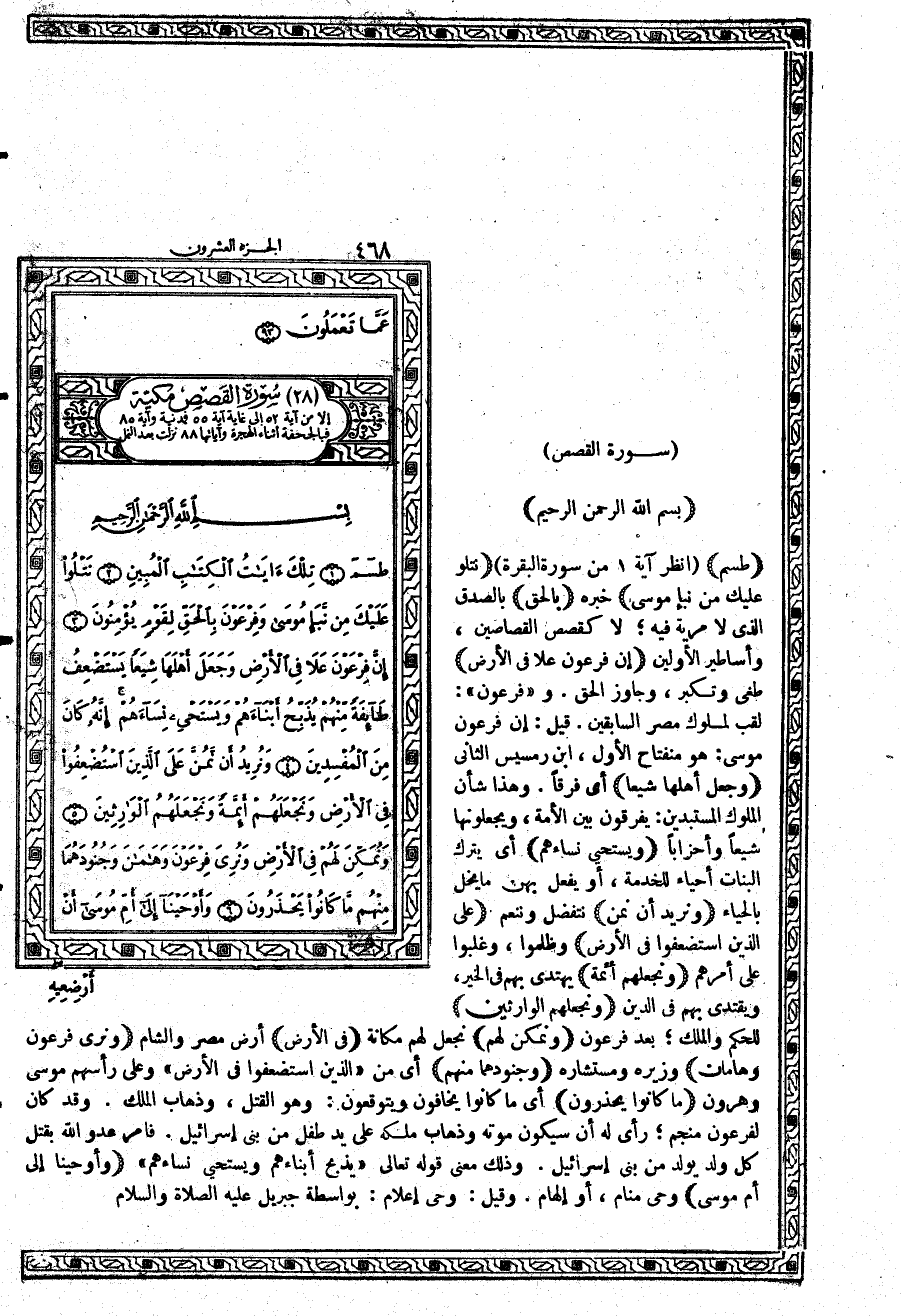 الجزء العشرون ٤٦٨
عَمَّا تَعْمَلُونَ ٩٣
(٢٨) سُورَةُ القَصَصِ مَكيّة
إلا من آية ٥٢ إلى غاية آية ٥٥ فمدنية وآية ٨٥
فبالجحفة أثناء الهجرة وآياتها ٨٨ نزلت بعد النمل
بِسْمِ ٱللَّهِ ٱلرَّحْمَٰنِ ٱلرَّحِيمِ
طسٓمٓ ١ تِلْكَ ءَايَٰتُ ٱلْكِتَٰبِ ٱلْمُبِينِ ٢ نَتْلُوا۟
عَلَيْكَ مِن نَّبَإِ مُوسَىٰ وَفِرْعَوْنَ بِٱلْحَقِّ لِقَوْمٍ يُؤْمِنُونَ ٣
إِنَّ فِرْعَوْنَ عَلَا فِى ٱلْأَرْضِ وَجَعَلَ أَهْلَهَا شِيَعًا يَسْتَضْعِفُ
طَآئِفَةً مِّنْهُمْ يُذَبِّحُ أَبْنَآءَهُمْ وَيَسْتَحْىِۦ نِسَآءَهُمْ ۚ إِنَّهُۥ كَانَ
مِنَ ٱلْمُفْسِدِينَ ٤ وَنُرِيدُ أَن نَّمُنَّ عَلَى ٱلَّذِينَ ٱسْتُضْعِفُوا۟
فِى ٱلْأَرْضِ وَنَجْعَلَهُمْ أَئِمَّةً وَنَجْعَلَهُمُ ٱلْوَٰرِثِينَ ٥
وَنُمَكِّنَ لَهُمْ فِى ٱلْأَرْضِ وَنُرِىَ فِرْعَوْنَ وَهَٰمَٰنَ وَجُنُودَهُمَا
مِنْهُم مَّا كَانُوا۟ يَحْذَرُونَ ٦ وَأَوْحَيْنَآ إِلَىٰٓ أُمِّ مُوسَىٰٓ أَنْ
أَرْضِعِيهِ
(سـورة القصص)
(بسم الله الرحمن الرحيم)
(طسم) (انظر آية ١ من سورة البقرة) (نتلو
عليك من نبإ موسى) خبره (بالحق) بالصدق
الذى لا مرية فيه ؛ لا كقصص القصاصين ،
وأساطير الأولين (إن فرعون علا فى الأرض)
طغى وتكبر ، وجاوز الحق . و «فرعون» :
لقب لملوك مصر السابقين . قيل : إن فرعون
موسى : هو منفتاح الأول ، ابن رمسيس الثانى
(وجعل أهلها شيعا) أى فرقاً . وهذا شأن
الملوك المستبدين: يفرقون بين الأمة ، ويجعلونها
شيعاً وأحزاباً (ويستحيي نساءهم) أى يترك
البنات أحياء للخدمة ، أو يفعل بهن مايخل
بالحياء (ونريد أن نمن) نتفضل وننعم (على
الذين استضعفوا فى الأرض) وظلموا ، وغلبوا
على أمرهم (ونجعلهم أئمة) يهتدى بهم فى الخير،
ويقتدى بهم فى الدين (ونجعلهم الوارثين)
للحكم والملك ؛ بعد فرعون (ونمكن لهم) نجعل لهم مكانة (فى الأرض) أرض مصر والشام (ونرى فرعون
وهامان) وزيره ومستشاره (وجنودهما منهم) أى من «الذين استضعفوا فى الأرض» وعلى رأسهم موسى
وهرون (ما كانوا يحذرون) أى ما كانوا يخافون ويتوقعون : وهو القتل ، وذهاب الملك . وقد كان
لفرعون منجم ؛ رأى له أن سيكون موته وذهاب ملكه على يد طفل من بنى إسرائيل . فأمر عدو الله بقتل
كل ولد يولد من بنى إسرائيل . وذلك معنى قوله تعالى «يذبح أبناءهم ويستحيي نساءهم» (وأوحينا إلى
أم موسى) وحى منام ، أو إلهام . وقيل : وحى إعلام : بواسطة جبريل عليه الصلاة والسلام